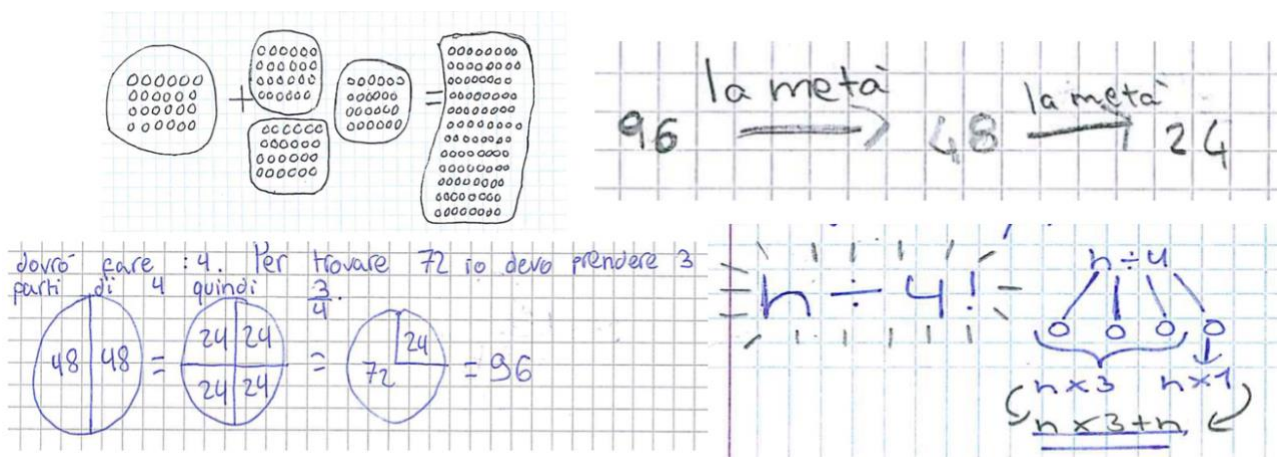 + =
la metà la metà
96 48 24
dovrò fare :4. Per trovare 72 io devo prendere 3
parti di 4 quindi 3/4.
48 48 = 24 24 24 24 = 72 24 = 96
n ÷ 4!
n ÷ 4
n x 3 n x 1
n x 3 + n